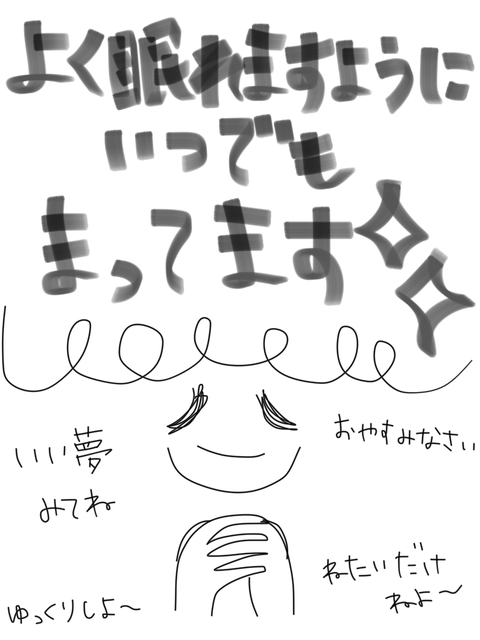 よく眠れますように
いつでも
まってます
おやすみなさい
いい夢
みてね
ねたいだけ
ねよ～
ゆっくりしよ～